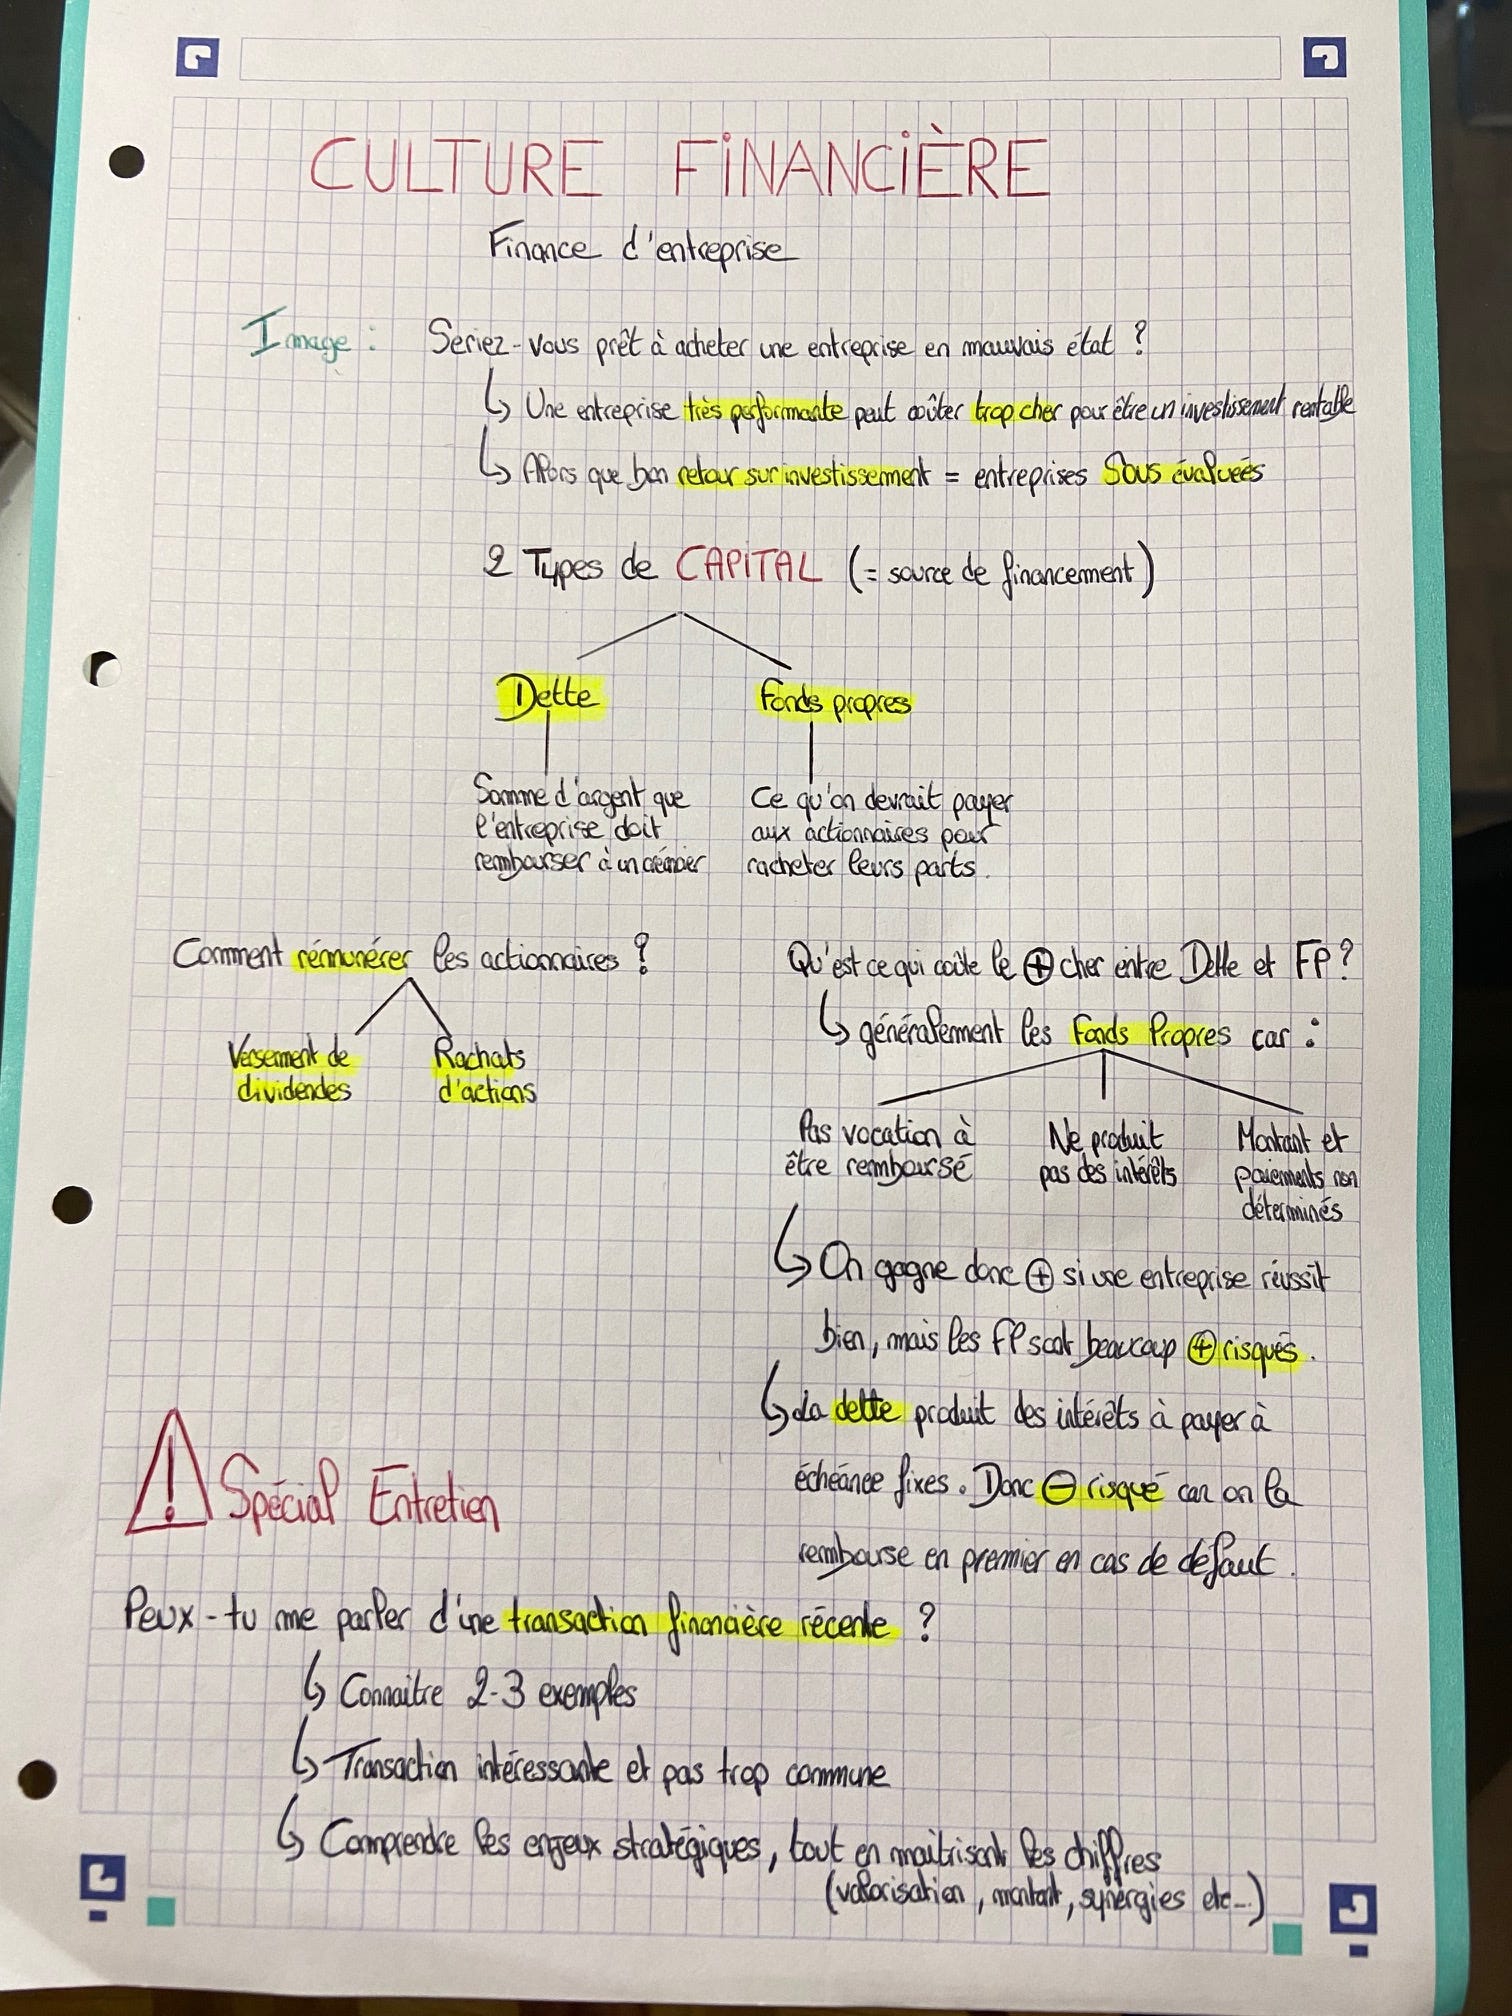 CULTURE FINANCIÈRE
Finance d'entreprise
Image : Seriez-vous prêt à acheter une entreprise en mauvais état ?
↳ Une entreprise très performante peut coûter trop cher pour être un investissement rentable
↳ Alors que bon retour sur investissement = entreprises Sous évaluées
2 Types de CAPITAL (= source de financement)
Dette
Fonds propres
Somme d'argent que
l'entreprise doit
rembourser à un créancier
Ce qu'on devrait payer
aux actionnaires pour
racheter leurs parts.
Comment rémunérer les actionnaires ?
Versement de
dividendes
Rachats
d'actions
Qu'est ce qui coûte le ⊕ cher entre Dette et FP ?
↳ généralement les Fonds Propres car :
Pas vocation à
être remboursé
Ne produit
pas des intérêts
Montant et
paiements non
déterminés
↳ On gagne donc ⊕ si une entreprise réussit
bien, mais les FP sont beaucoup ⊕ risqués.
↳ La dette produit des intérêts à payer à
échéance fixes. Donc ⊖ risqué car on la
rembourse en premier en cas de défaut.
⚠ Spécial Entretien
Peux-tu me parler d'une transaction financière récente ?
↳ Connaitre 2-3 exemples
↳ Transaction intéressante et pas trop commune
↳ Comprendre les enjeux stratégiques, tout en maîtrisant les chiffres
(valorisation, montant, synergies etc...)